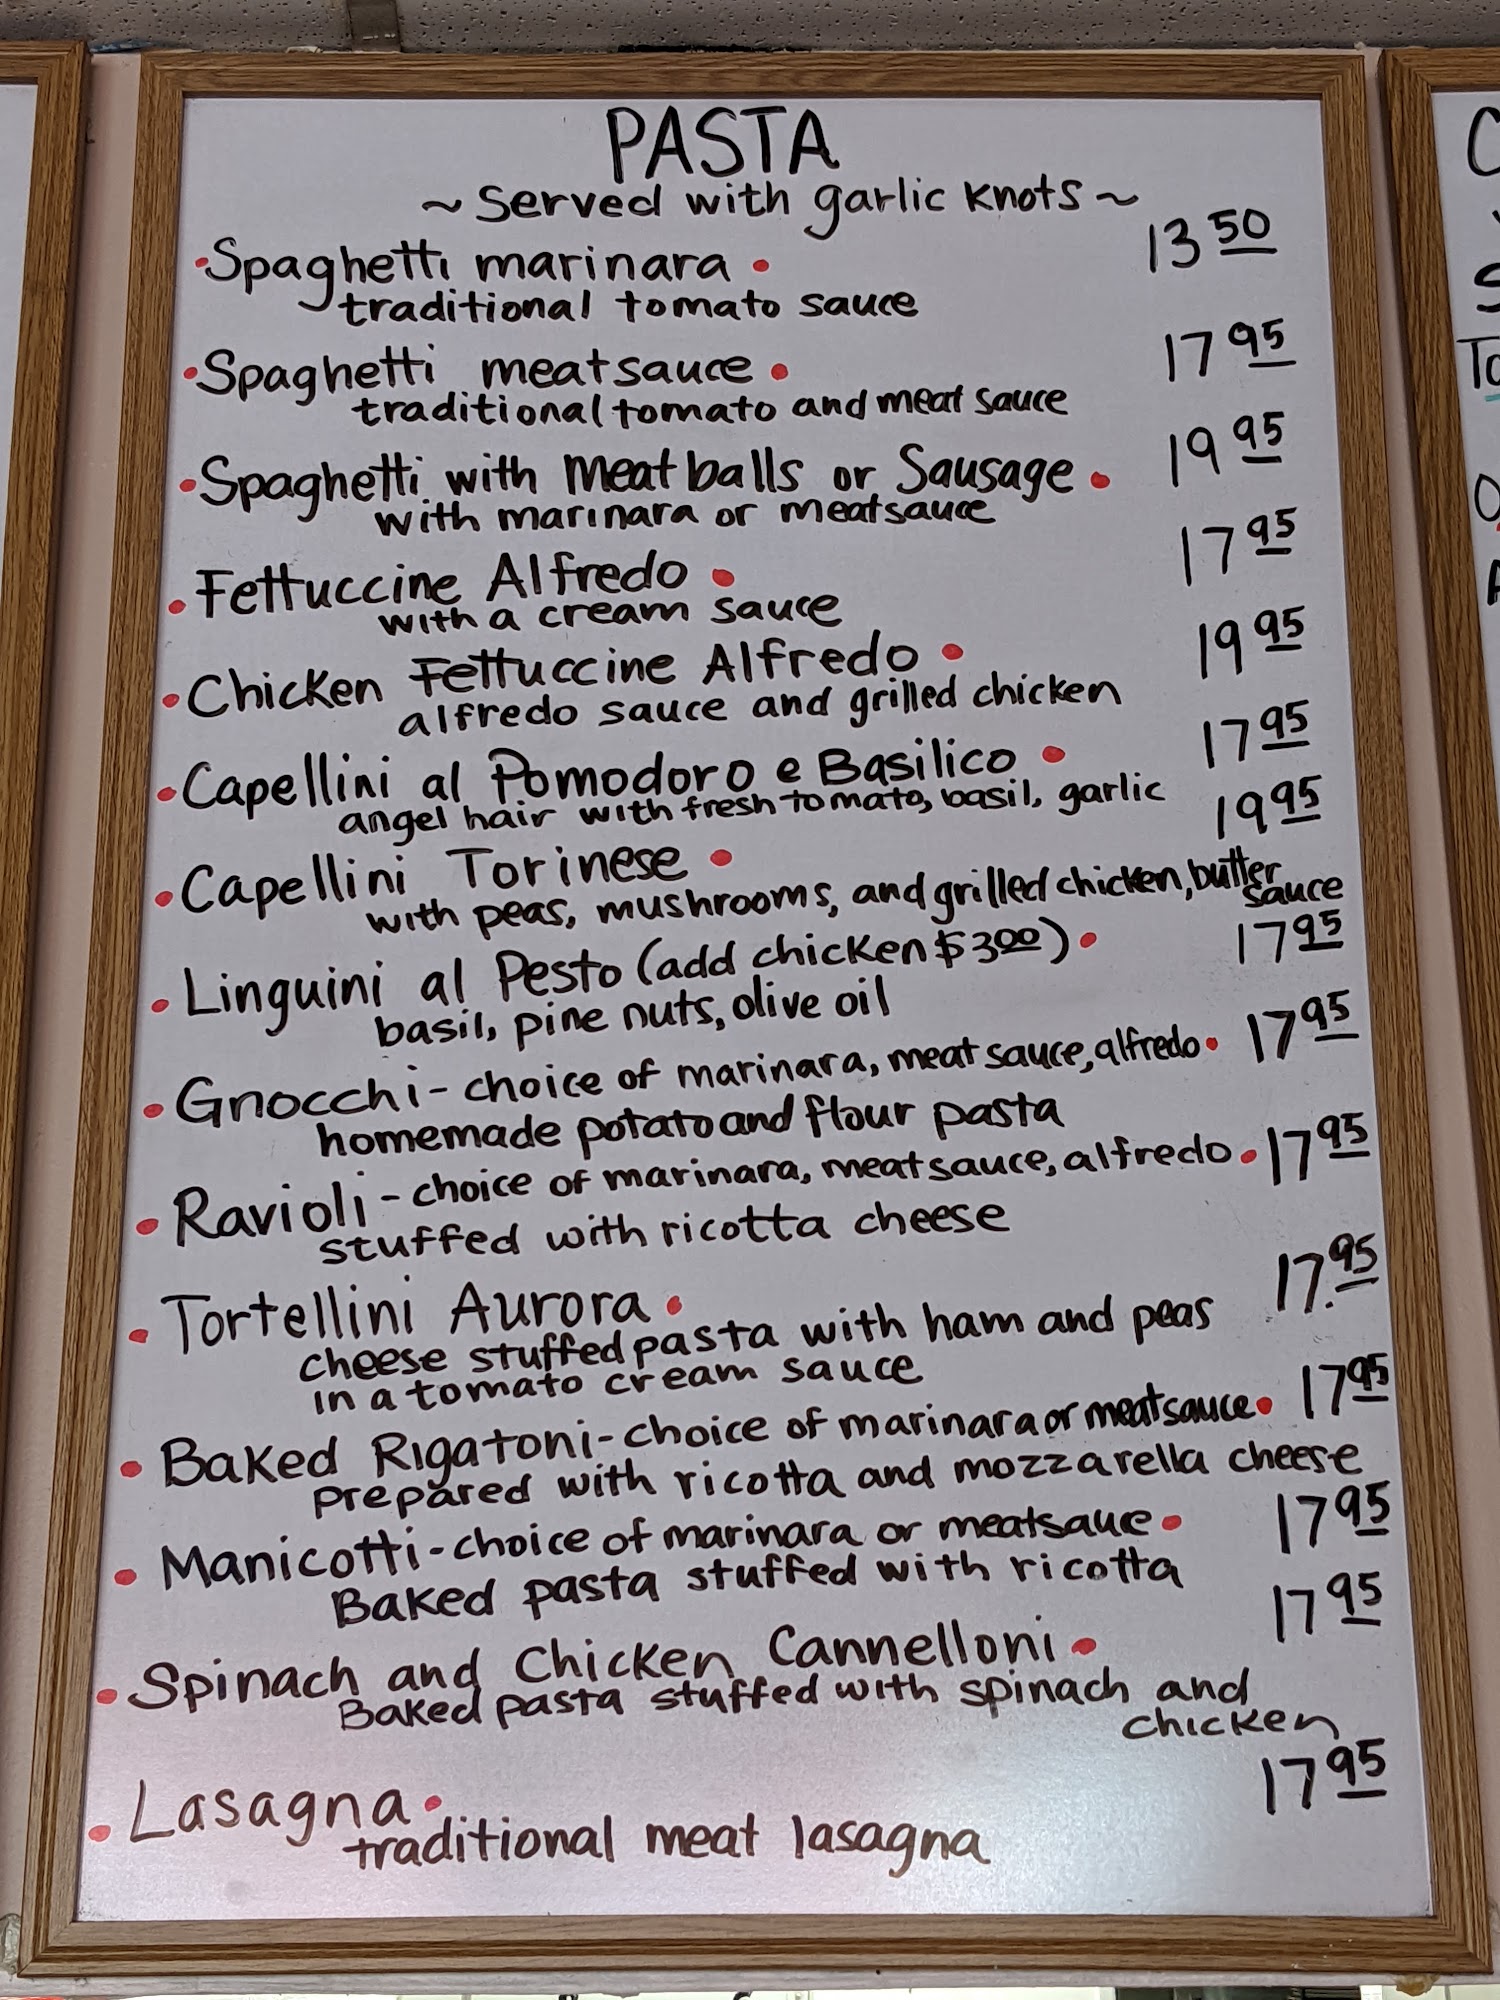 PASTA
~ Served with garlic knots ~
• Spaghetti marinara • 13 50
traditional tomato sauce
• Spaghetti meatsauce • 17 95
traditional tomato and meat sauce
• Spaghetti with Meatballs or Sausage • 19 95
with marinara or meatsauce
• Fettuccine Alfredo • 17 95
with a cream sauce
• Chicken Fettuccine Alfredo • 19 95
alfredo sauce and grilled chicken
• Capellini al Pomodoro e Basilico • 17 95
angel hair with fresh tomato, basil, garlic
• Capellini Torinese • 19 95
with peas, mushrooms, and grilled chicken, butter
sauce
• Linguini al Pesto (add chicken $3.00) • 17 95
basil, pine nuts, olive oil
• Gnocchi - choice of marinara, meat sauce, alfredo • 17 95
homemade potato and flour pasta
• Ravioli - choice of marinara, meatsauce, alfredo • 17 95
stuffed with ricotta cheese
• Tortellini Aurora • 17.95
cheese stuffed pasta with ham and peas
in a tomato cream sauce
• Baked Rigatoni - choice of marinara or meatsauce • 17 95
prepared with ricotta and mozzarella cheese
• Manicotti - choice of marinara or meatsauce • 17 95
Baked pasta stuffed with ricotta
• Spinach and Chicken Cannelloni • 17 95
Baked pasta stuffed with spinach and
chicken
• Lasagna • 17 95
traditional meat lasagna